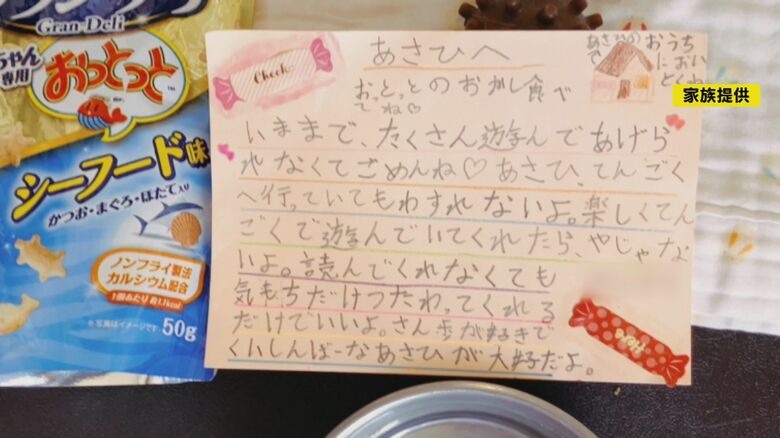 Gran-Deli
ちゃん
専用
おっとっと
シーフード味
かつお・まぐろ・ほたて入り
ノンフライ製法
カルシウム配合
1個あたり 約1.1kcal
※写真はイメージです
50g
Cheek
あさひへ
おっとっとのおかし食べ
てね♡
あさひの
で
おうち
におい
とくね
家族提供
いままで、たくさん遊んであげら
れなくてごめんね♡あさひ、てんごく
へ行っていてもわすれないよ。楽しくてん
ごくで遊んでいてくれたら、やじゃな
いよ。読んでくれなくても
気もちだけつたわってくれる
だけでいいよ。さん歩が好きで
くいしんぼーなあさひが大好だよ。